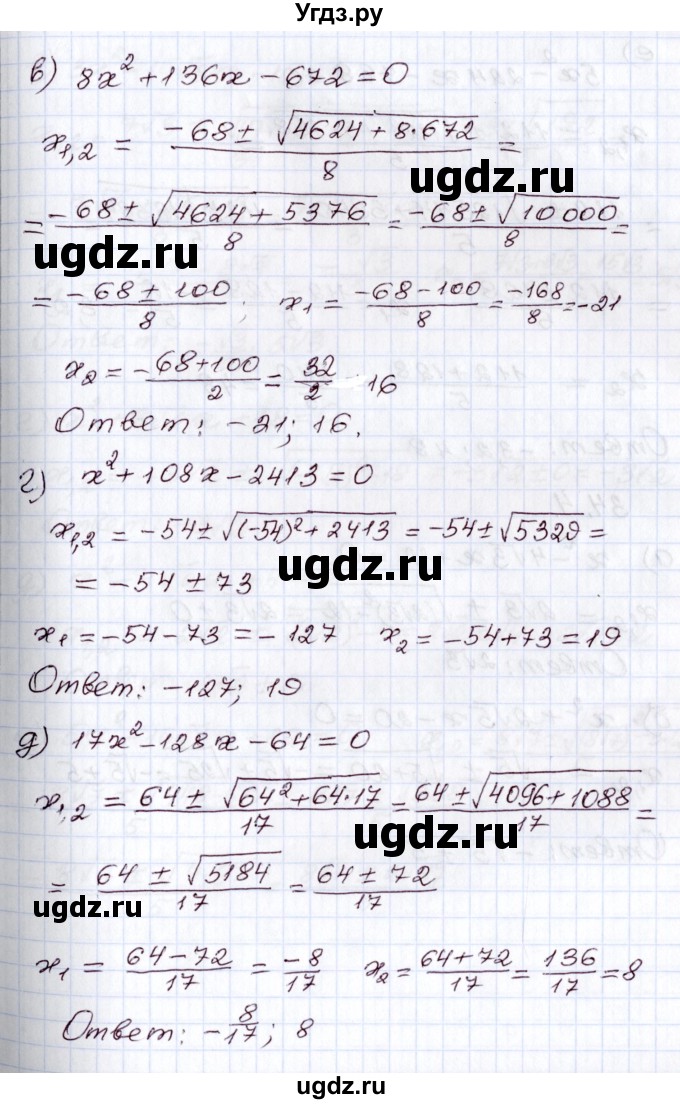 Угдз.ру
в) 8x² + 136x – 672 = 0
x₁,₂ = (–68 ± √(4624 + 8·672))/8 =
ugdz.ru
= (–68 ± √(4624 + 5376))/8 = (–68 ± √10 000)/8 =
ugdz.ru
= (–68 ± 100)/8 ; x₁ = (–68 – 100)/8 = –168/8 = –21
x₂ = –(68 + 100)/2 = 32/2 16
ugdz.ru
Ответ: –21; 16.
г) x² + 108x – 2413 = 0
x₁,₂ = –54 ± √((–54)² + 2413) = –54 ± √5329 =
ugdz.ru
= –54 ± 73
x₁ = –54 – 73 = –127 x₂ = –54 + 73 = 19
ugdz.ru
Ответ: –127; 19
д) 17x² – 128x – 64 = 0
x₁,₂ = (64 ± √(64² + 64·17))/17 = (64 ± √(4096 + 1088))/17 =
ugdz.ru
= (64 ± √5184)/17 = (64 ± 72)/17
ugdz.ru
x₁ = (64 – 72)/17 = –8/17 x₂ = (64 + 72)/17 = 136/17 = 8
ugdz.ru
Ответ: –8/17; 8
ugdz.ru